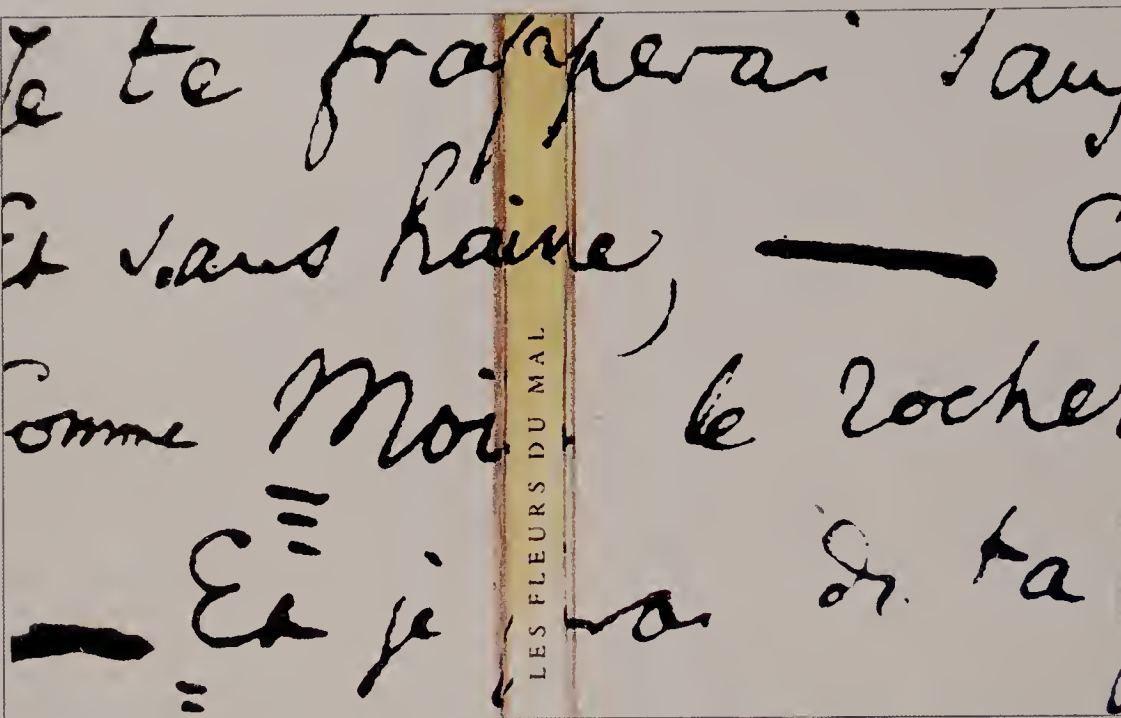 Je te frapperai Sans
Et sans haine, —
Comme Moi le rocher
— Et je de ta
LES FLEURS DU MAL